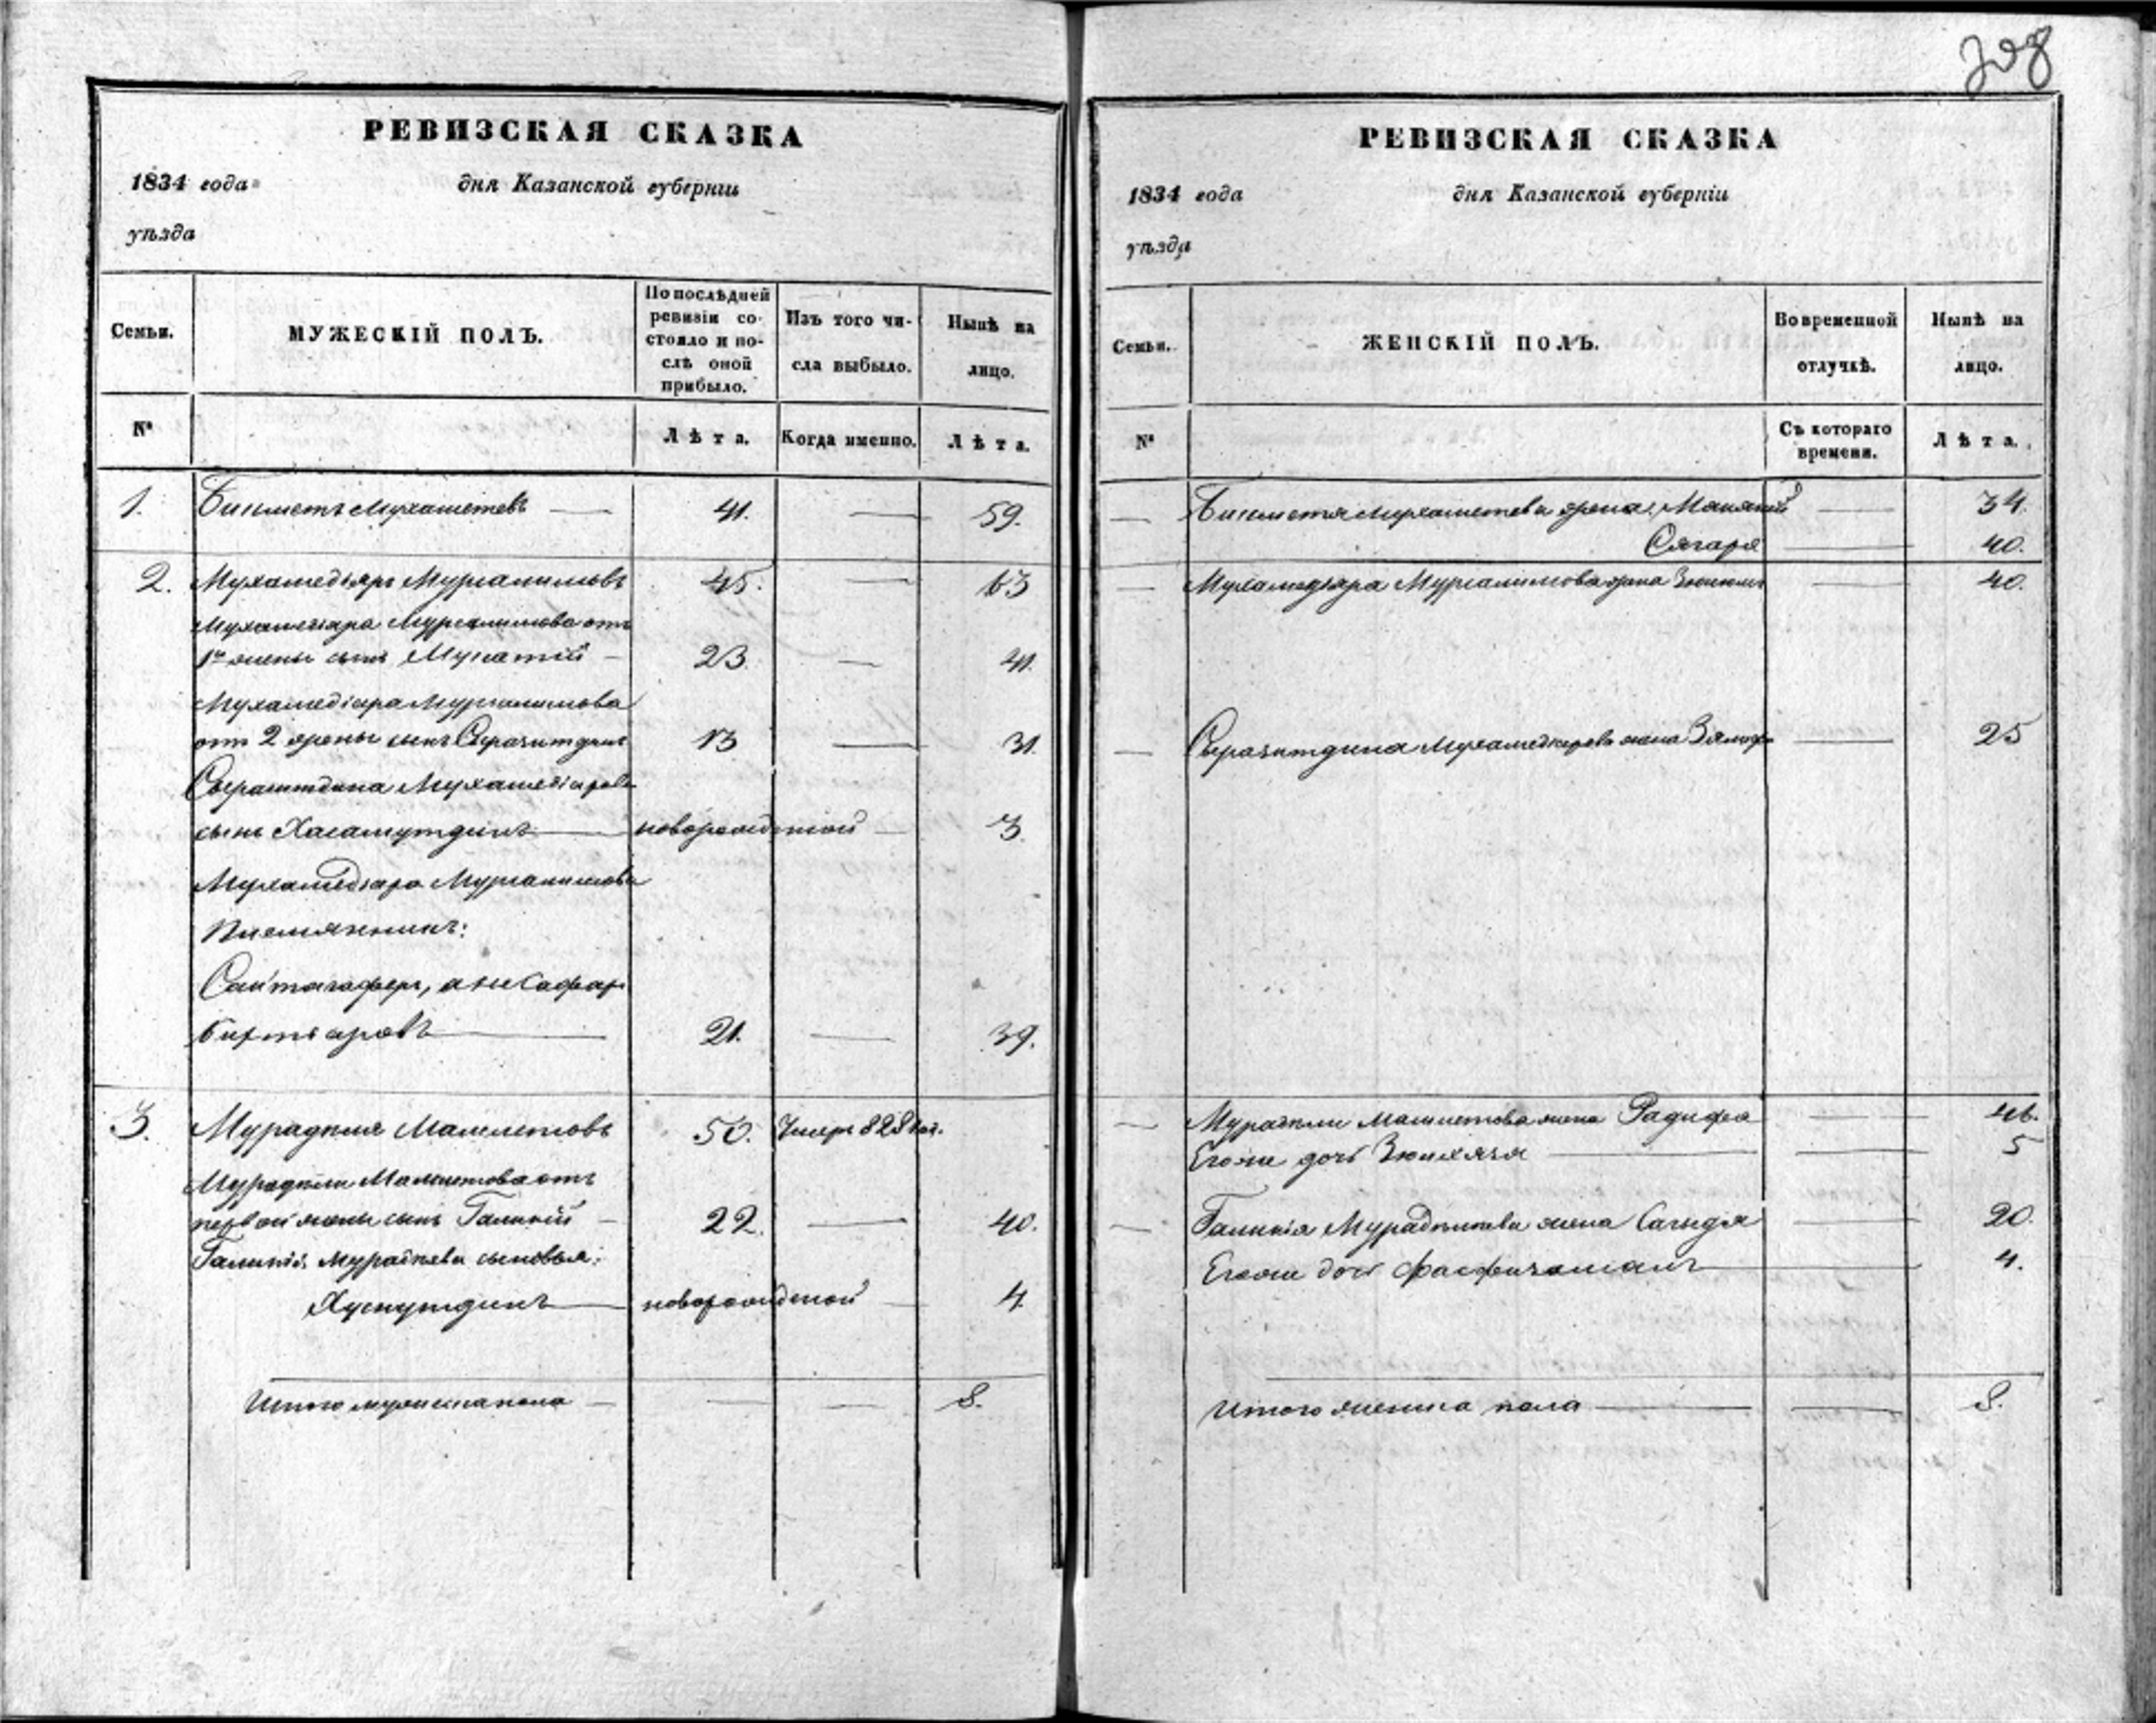 208
РЕВИЗСКАЯ СКАЗКА
1834 года дня Казанской губернiи
уѣзда
Семьи.
МУЖЕСКІЙ ПОЛЪ.
По послѣдней ревизіи состояло и послѣ оной прибыло.
Изъ того числа выбыло.
Нынѣ на лицо.
№
Лѣта.
Когда именно.
Лѣта.
1. Бикметъ Мухаметевъ 41. 59.
2. Мухамедьяръ Мурсалимовъ 45. 63
Мухамедьяра Мурсалимова отъ
1й жены сынъ 23. 41.
Мухамедіяра Мурсалимова
отъ 2 жены сынъ Сыразитдинъ 13 31.
Сыразитдина Мухамедіярова
сынъ Хасамутдинъ новорожденной 3.
Мухамедьяра Мурсалимова
Племянникъ:
Саитъгаферъ, а не Сафаръ
Бихтѣяровъ 21. 39.
3. Мурадъкля Маметовъ 50. Умеръ 828 год.
Мурадъкли Маметова отъ
первой жены сынъ Галикій 22. 40.
Галикія сыновья:
Хуснутдинъ новорожденной 4
Итого мужеска пола 8.
РЕВИЗСКАЯ СКАЗКА
1834 года дня Казанской губернiи
уѣзда
Семьи.
ЖЕНСКІЙ ПОЛЪ.
Во временной отлучкѣ.
Нынѣ на лицо.
№
Съ котораго времени.
Лѣта.
Бикметя Мухаметева жена: 34.
Сягаря 40.
Мухамедьяра Мурсалимова жена 40.
Сыразитдина Мухамедьярова жена 25
Мурадъкли Маметова жена Радифа 46.
Его же дочь Зюлхязя 5
Галикія жена Сагидя 20.
Его же дочь 4.
Итого женска пола 8.